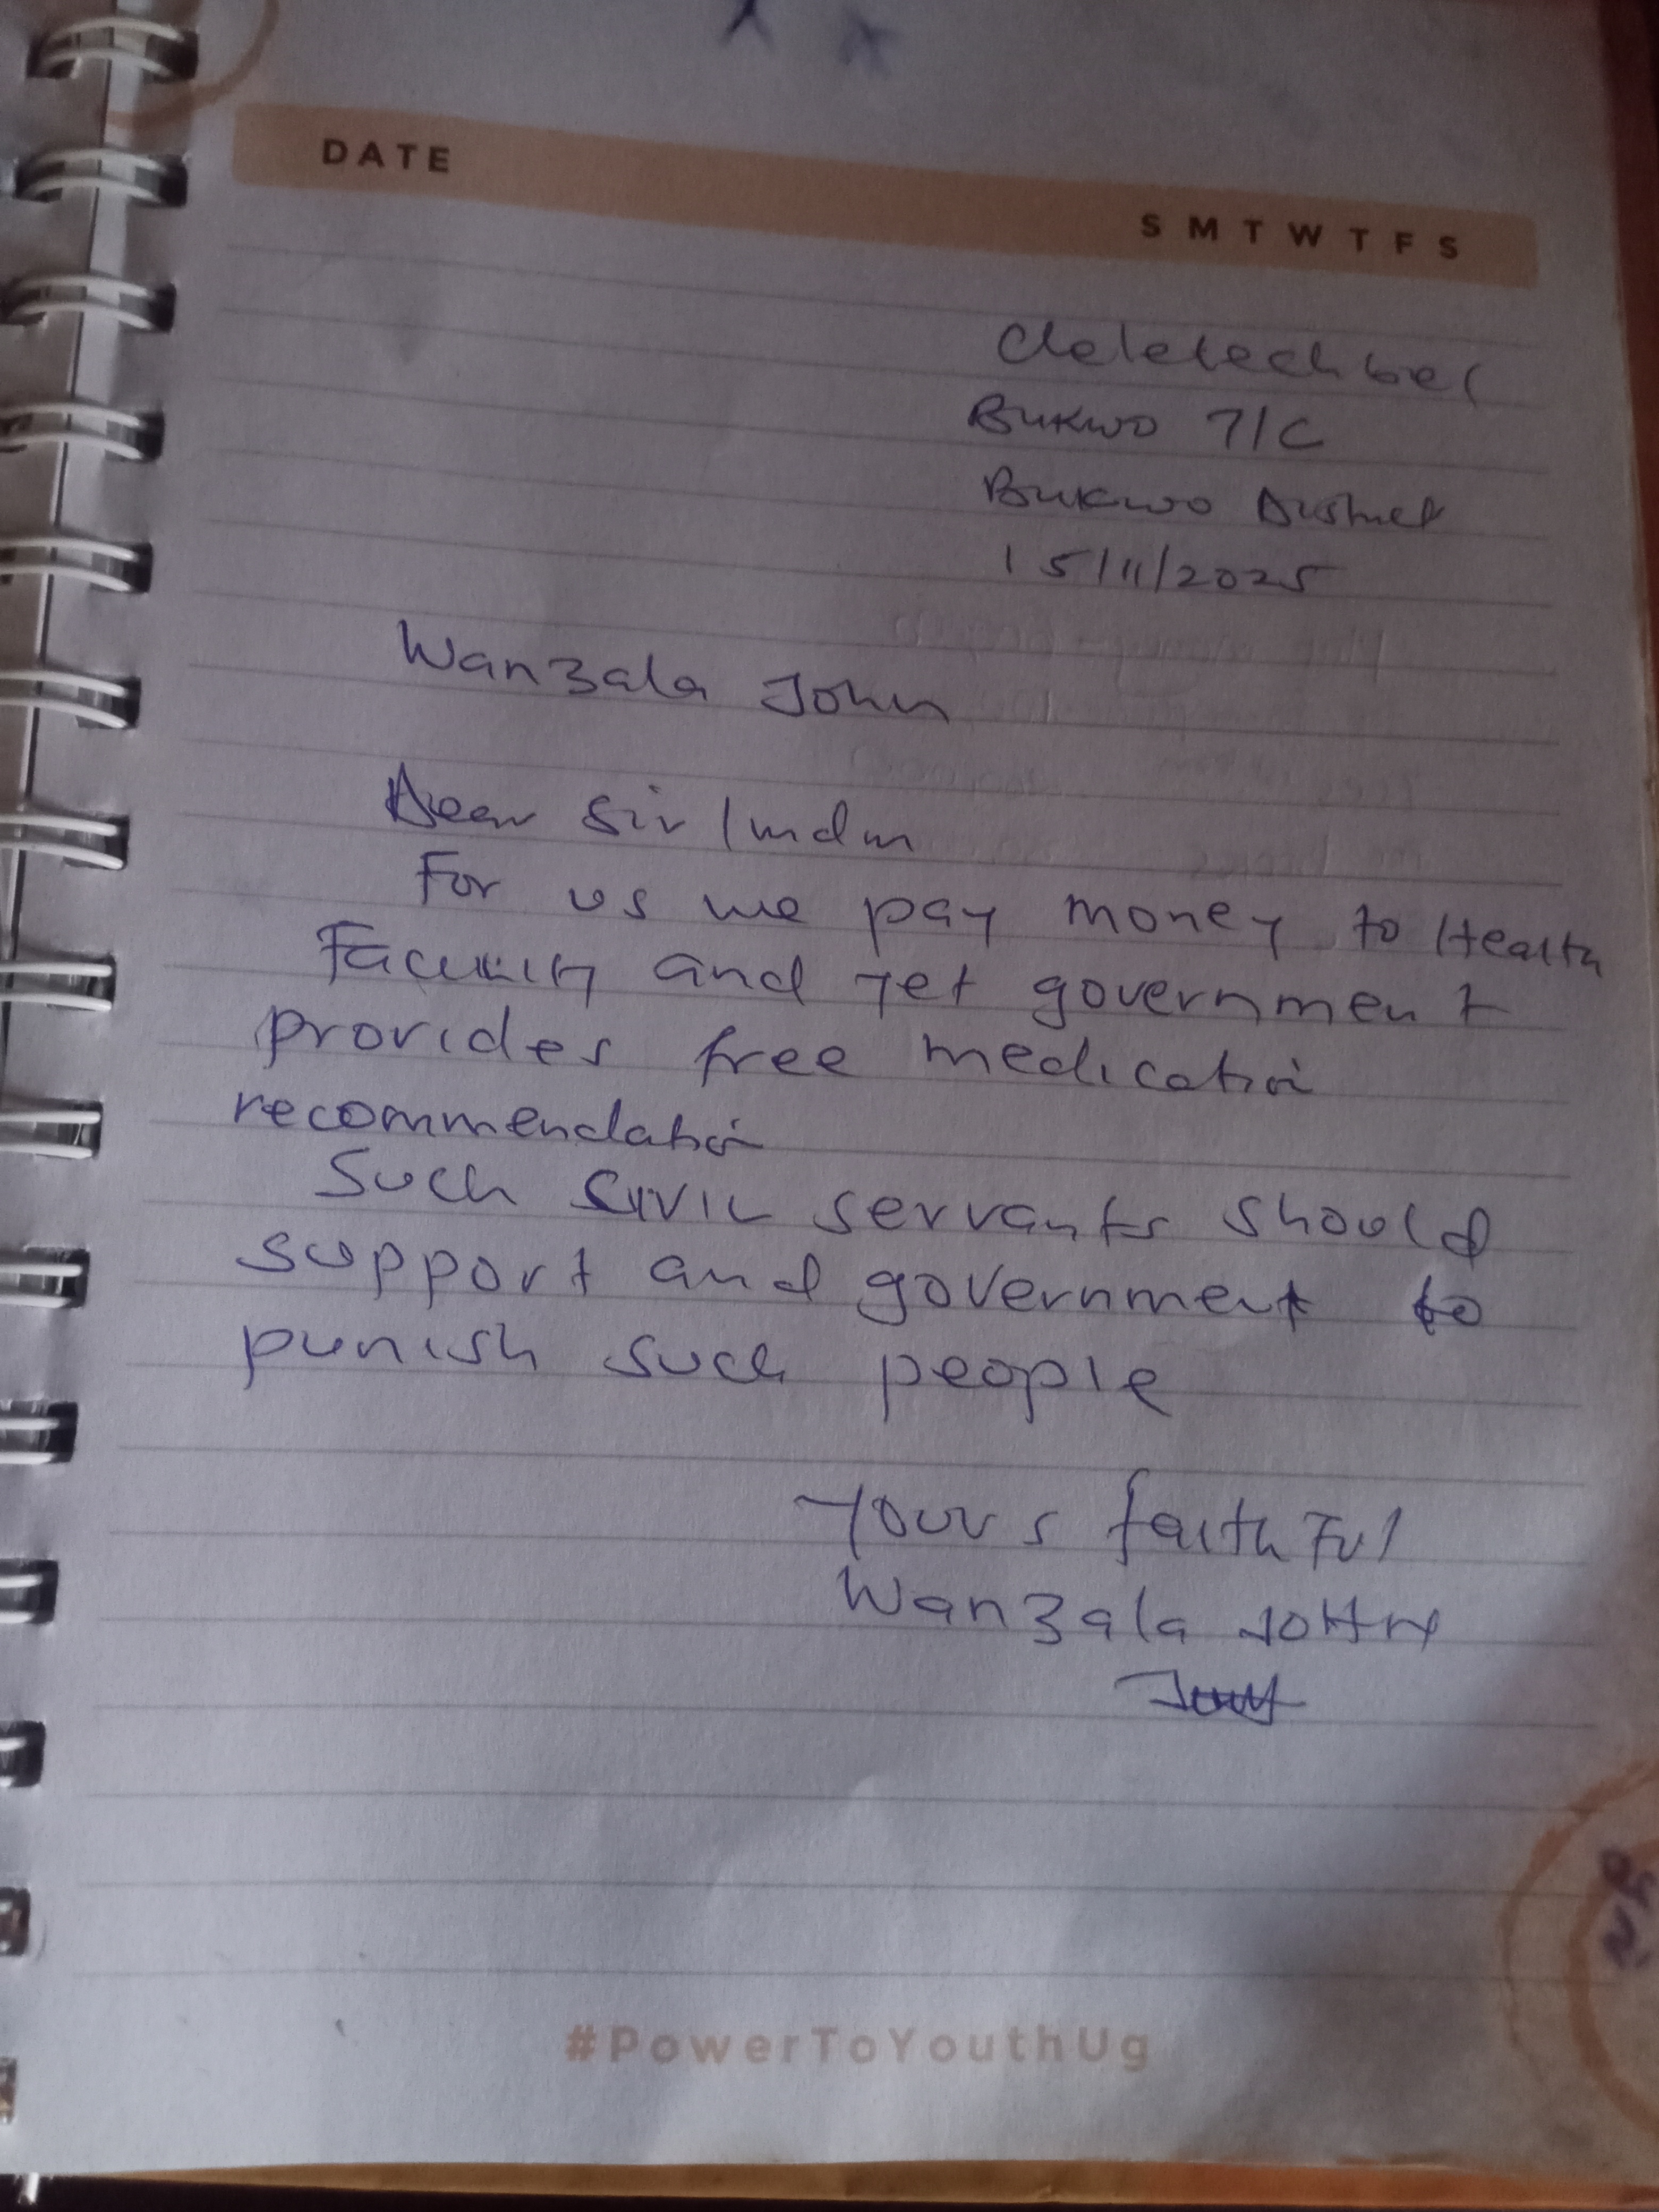 DATE
S M T W T F S
Cheletechbel
Bukwo T/C
Bukwo District
15/11/2025
Wanzala John
Dear Sir/mdm
For us we pay money to Health
Facility and yet government
provides free medication
recommendation
Such sivil servants should
support and government to
punish such people
Yours faithful
Wanzala JOHN
#PowerToYouthUg